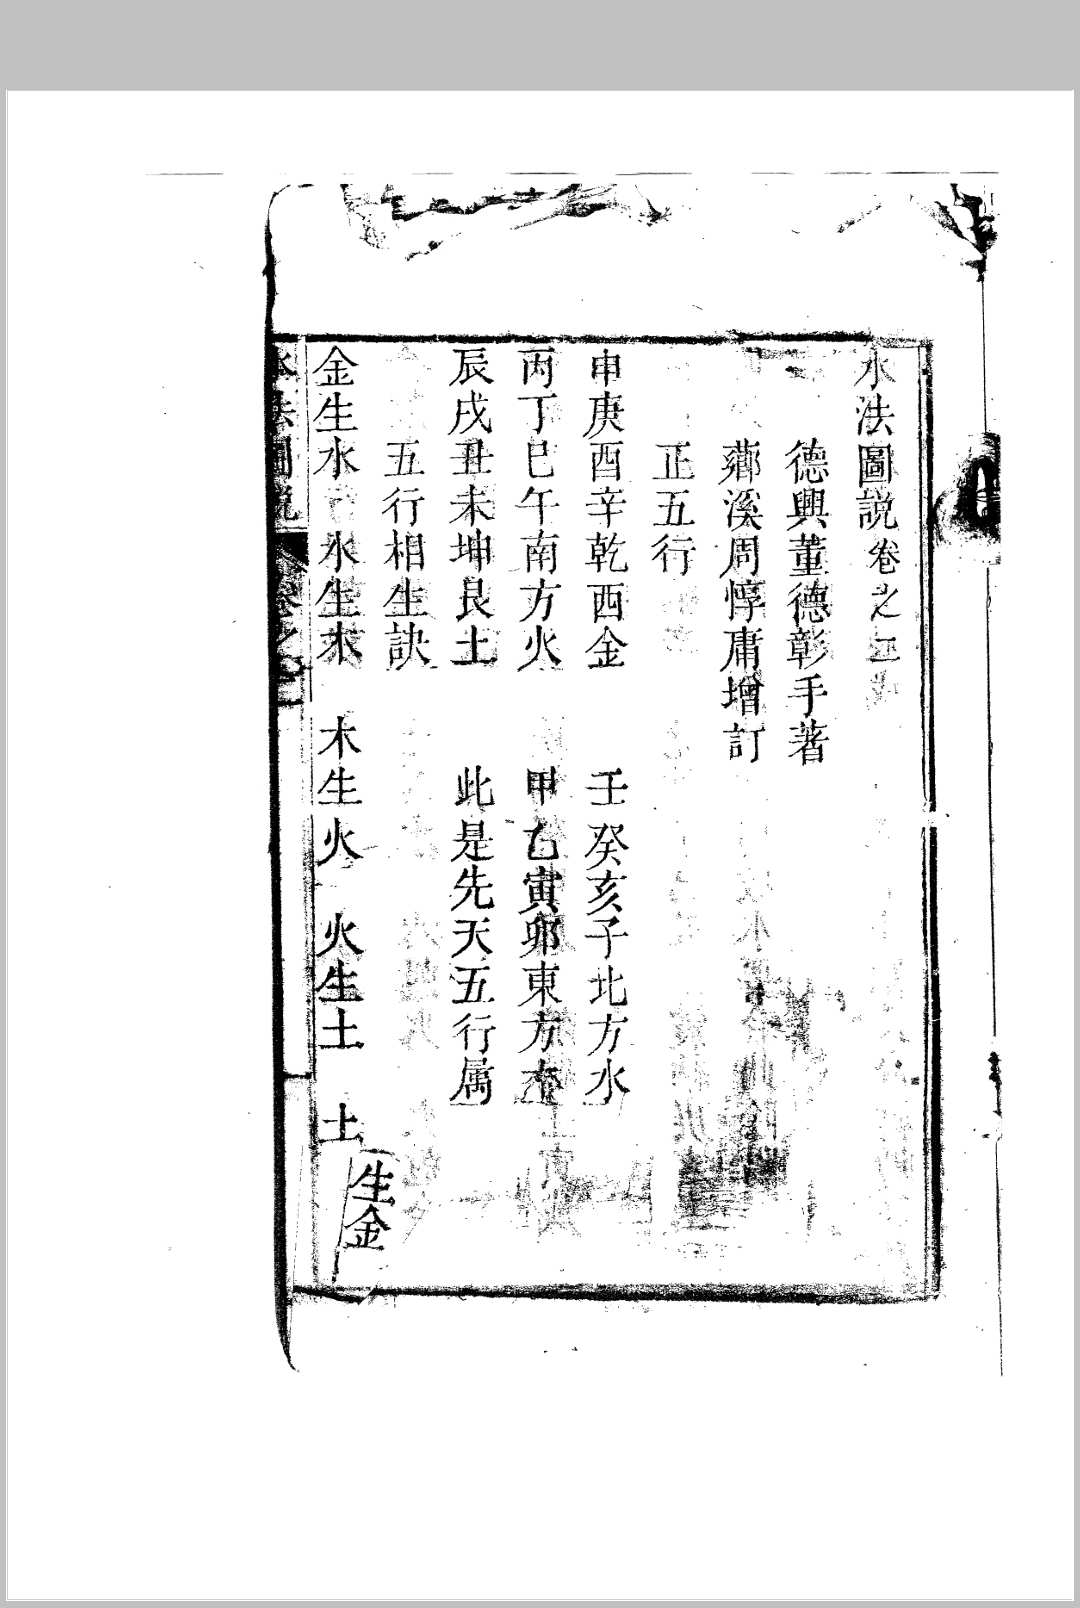 水法圖説卷之
德興董德彰手著
薌溪周惇庸增訂
正五行
申庚酉辛乾西金 壬癸亥子北方水
丙丁巳午南方火 甲乙寅卯東方木
辰戌丑未坤艮土 此是先天五行属
五行相生訣
金生水 水生木 木生火 火生土 土生金
水法圖説 卷之